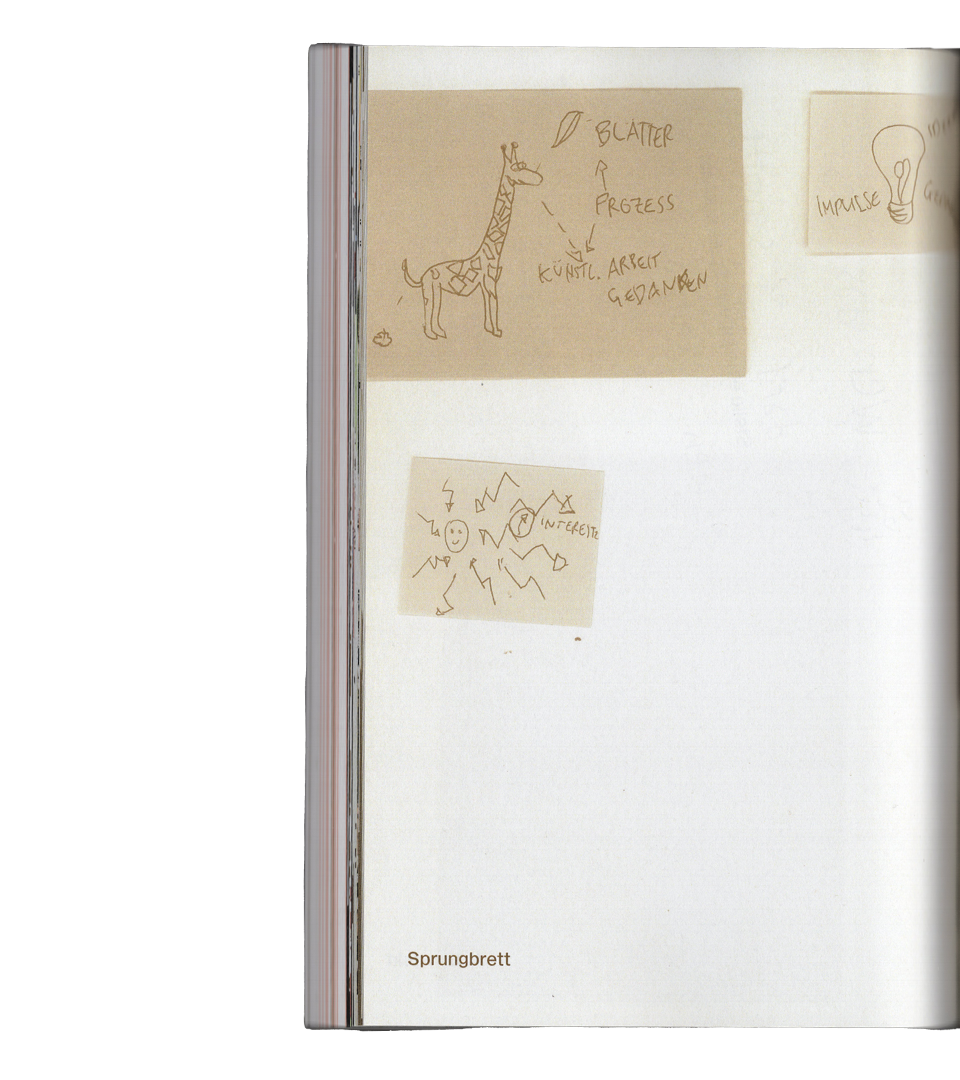 BLÄTTER
PROZESS
KÜNSTL. ARBEIT
GEDANKEN
IMPULSE
INTERESTE
Sprungbrett